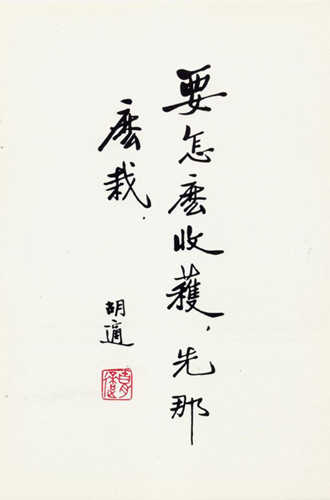 要怎麽收穫，先那
麽栽．
胡適